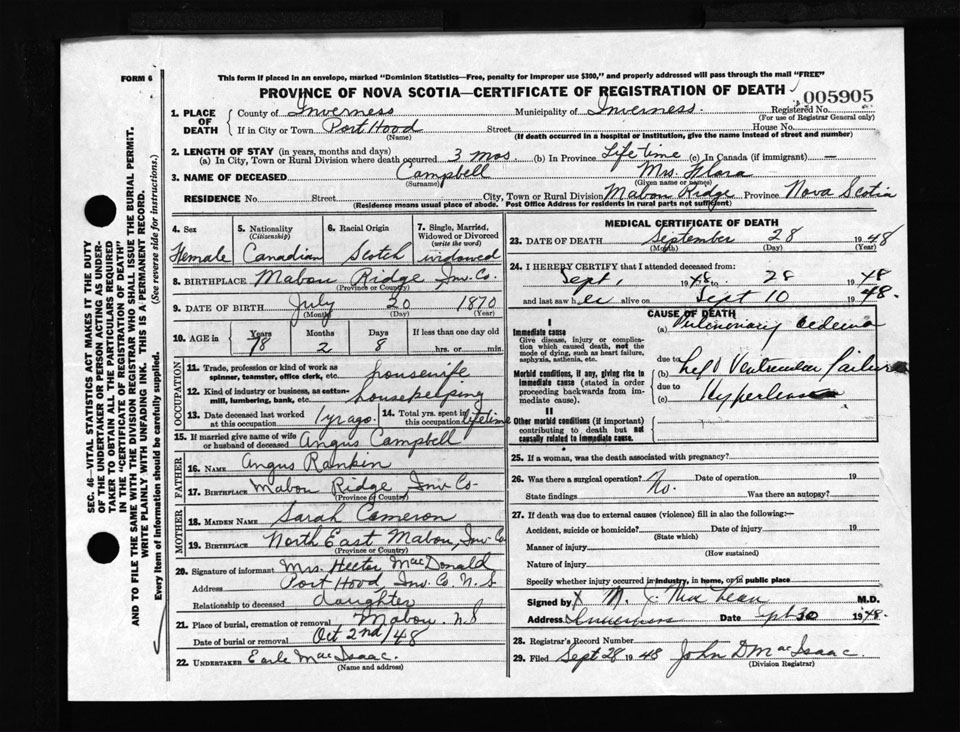 FORM 6
This form if placed in an envelope, marked "Dominion Statistics—Free, penalty for improper use $300," and properly addressed will pass through the mail "FREE"
PROVINCE OF NOVA SCOTIA—CERTIFICATE OF REGISTRATION OF DEATH
005905
1. PLACE OF DEATH
County of Inverness Municipality of Inverness. Registered No.
(For use of Registrar General only)
If in City or Town Port Hood Street House No.
(Name) (If death occurred in a hospital or institution, give the name instead of street and number)
2. LENGTH OF STAY (in years, months and days)
(a) In City, Town or Rural Division where death occurred 3 mos. (b) In Province Life time (c) In Canada (if immigrant) —
3. NAME OF DECEASED Campbell Mrs. Flora
(Surname) (Given name or names)
RESIDENCE No. Street City, Town or Rural Division Mabou Ridge Province Nova Scotia
(Residence means usual place of abode. Post Office Address for residents in rural parts not sufficient)
4. Sex Female
5. Nationality (Citizenship) Canadian
6. Racial Origin Scotch
7. Single, Married, Widowed or Divorced (write the word) widowed
8. BIRTHPLACE Mabou Ridge Inv. Co.
(Province or Country)
9. DATE OF BIRTH July 20 1870
(Month) (Day) (Year)
10. AGE in Years Months Days If less than one day old
78 2 8 hrs. or min.
OCCUPATION
11. Trade, profession or kind of work as spinner, teamster, office clerk, etc. housewife
12. Kind of industry or business, as cotton-mill, lumbering, bank, etc. housekeeping
13. Date deceased last worked at this occupation 1 yr ago.
14. Total yrs. spent in this occupation lifetime
15. If married give name of wife or husband of deceased Angus Campbell
FATHER
16. NAME Angus Rankin
17. BIRTHPLACE Mabou Ridge Inv Co.
(Province or Country)
MOTHER
18. MAIDEN NAME Sarah Cameron
19. BIRTHPLACE North East Mabou, Inv Co
(Province or Country)
20. Signature of informant Mrs. Hector MacDonald
Address Port Hood Inv. Co. N. S.
Relationship to deceased daughter
21. Place of burial, cremation or removal Mabou N S
Date of burial or removal Oct 2nd/48
22. UNDERTAKER Earle MacIsaac.
(Name and address)
MEDICAL CERTIFICATE OF DEATH
23. DATE OF DEATH September 28 1948
(Month) (Day) (Year)
24. I HEREBY CERTIFY that I attended deceased from:
Sept, 1948 28 48
and last saw her alive on Sept 10 1948.
CAUSE OF DEATH
I
Immediate cause
Give disease, injury or complication which caused death, not the mode of dying, such as heart failure, asphyxia, asthenia, etc.
(a) Pulmonary oedema
due to
Morbid conditions, if any, giving rise to immediate cause (stated in order proceeding backwards from immediate cause).
(b) Left Ventricular failure
due to
(c)
II
Other morbid conditions (if important) contributing to death but not causally related to immediate cause.
25. If a woman, was the death associated with pregnancy?
26. Was there a surgical operation? No. Date of operation 19
State findings Was there an autopsy?
27. If death was due to external causes (violence) fill in also the following:—
Accident, suicide or homicide? Date of injury 19
(State which)
Manner of injury
(How sustained)
Nature of injury
Specify whether injury occurred in industry, in home, or in public place
Signed by X M. J. MacLean M.D.
Address Inverness Date Sept 30 1948.
28. Registrar's Record Number
29. Filed Sept 28 1948 John D MacIsaac.
(Division Registrar)
SEC. 46—VITAL STATISTICS ACT MAKES IT THE DUTY
OF THE UNDERTAKER OR PERSON ACTING AS UNDER-
TAKER TO OBTAIN ALL THE PARTICULARS REQUIRED
IN THE "CERTIFICATE OF REGISTRATION OF DEATH"
AND TO FILE THE SAME WITH THE DIVISION REGISTRAR WHO SHALL ISSUE THE BURIAL PERMIT.
WRITE PLAINLY WITH UNFADING INK. THIS IS A PERMANENT RECORD.
Every item of Information should be carefully supplied. (See reverse side for instructions.)